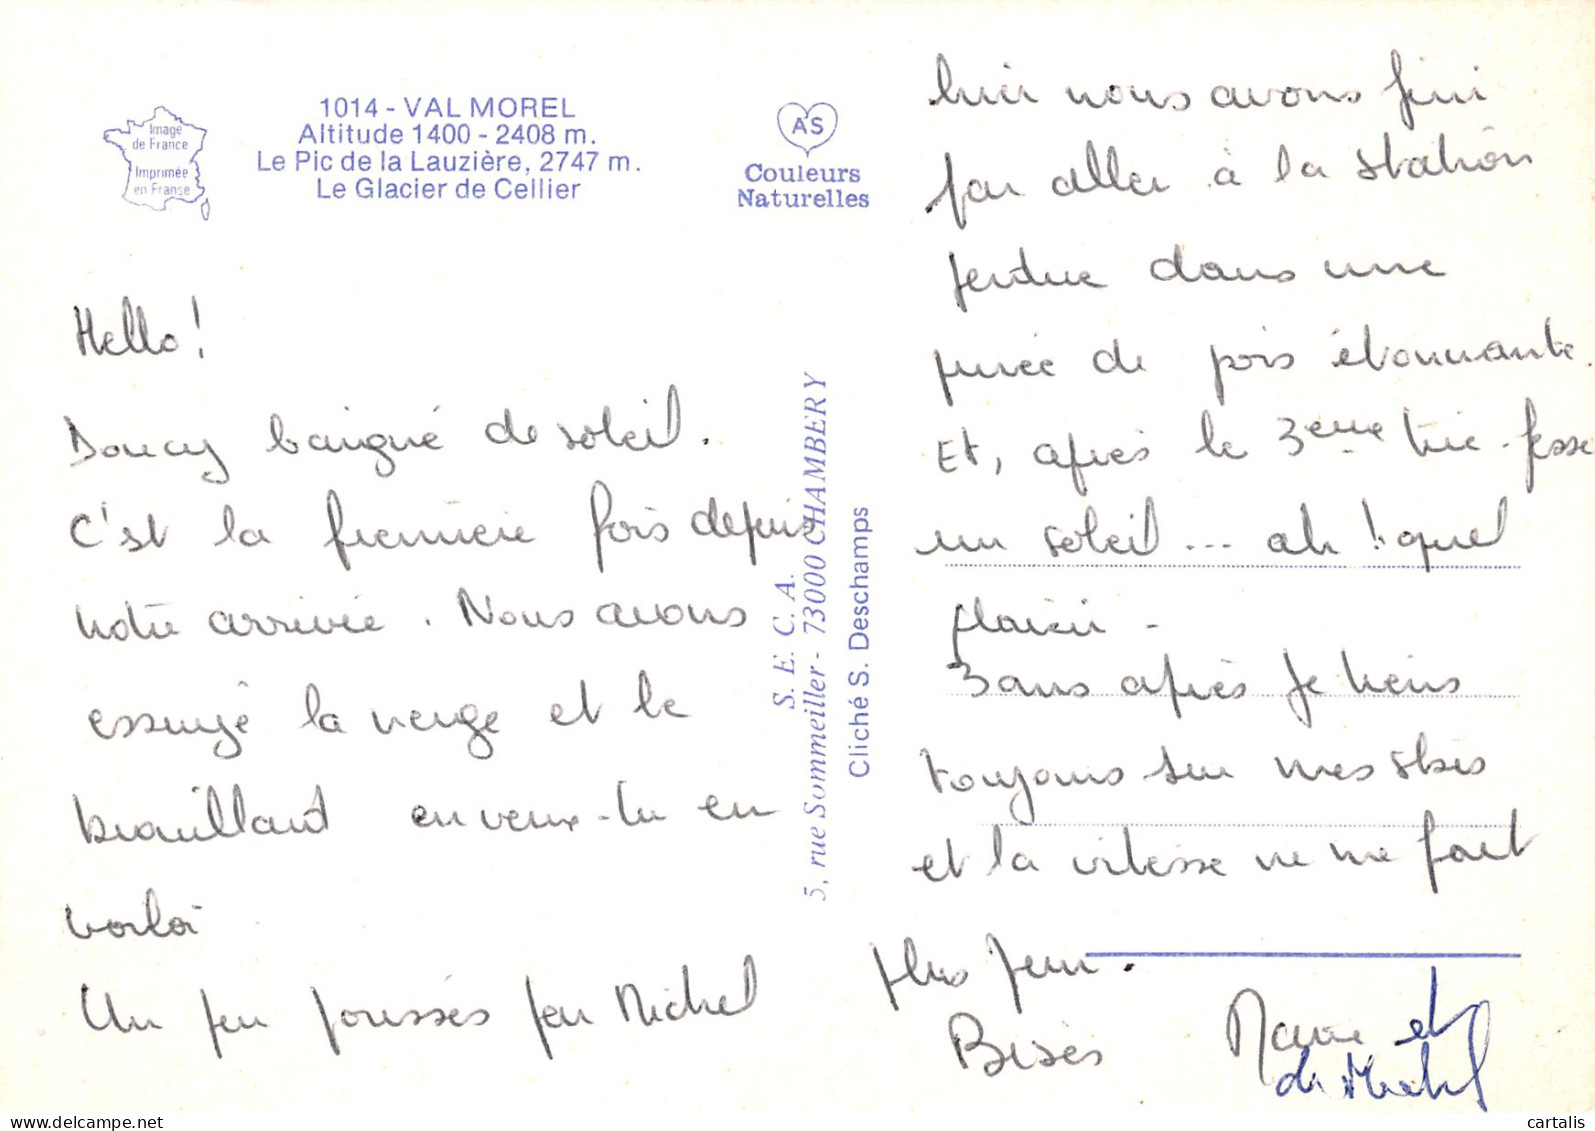 Image
de France
Imprimée
en France
1014 - VALMOREL
Altitude 1400 - 2408 m.
Le Pic de la Lauzière, 2747 m.
Le Glacier de Cellier
AS
Couleurs
Naturelles
Hello!
Doucy baigné de soleil.
C'est la première fois depuis
notre arrivée. Nous avons
essuyé la neige et le
brouillard en veux-tu en
voilà
Un peu poussés par Michel
S. E. C. A.
5, rue Sommeiller - 73000 CHAMBERY
Cliché S. Deschamps
hier nous avons fini
par aller à la station
perdue dans une
purée de pois étonnante.
Et, après le 3eme tire-fesse
un soleil... ah! quel
plaisir -
3 ans après je tiens
toujours sur mes skis
et la vitesse ne me fait
plus peur.
Bises Marie et
de Michel
cartalis sur www.delcampe.net